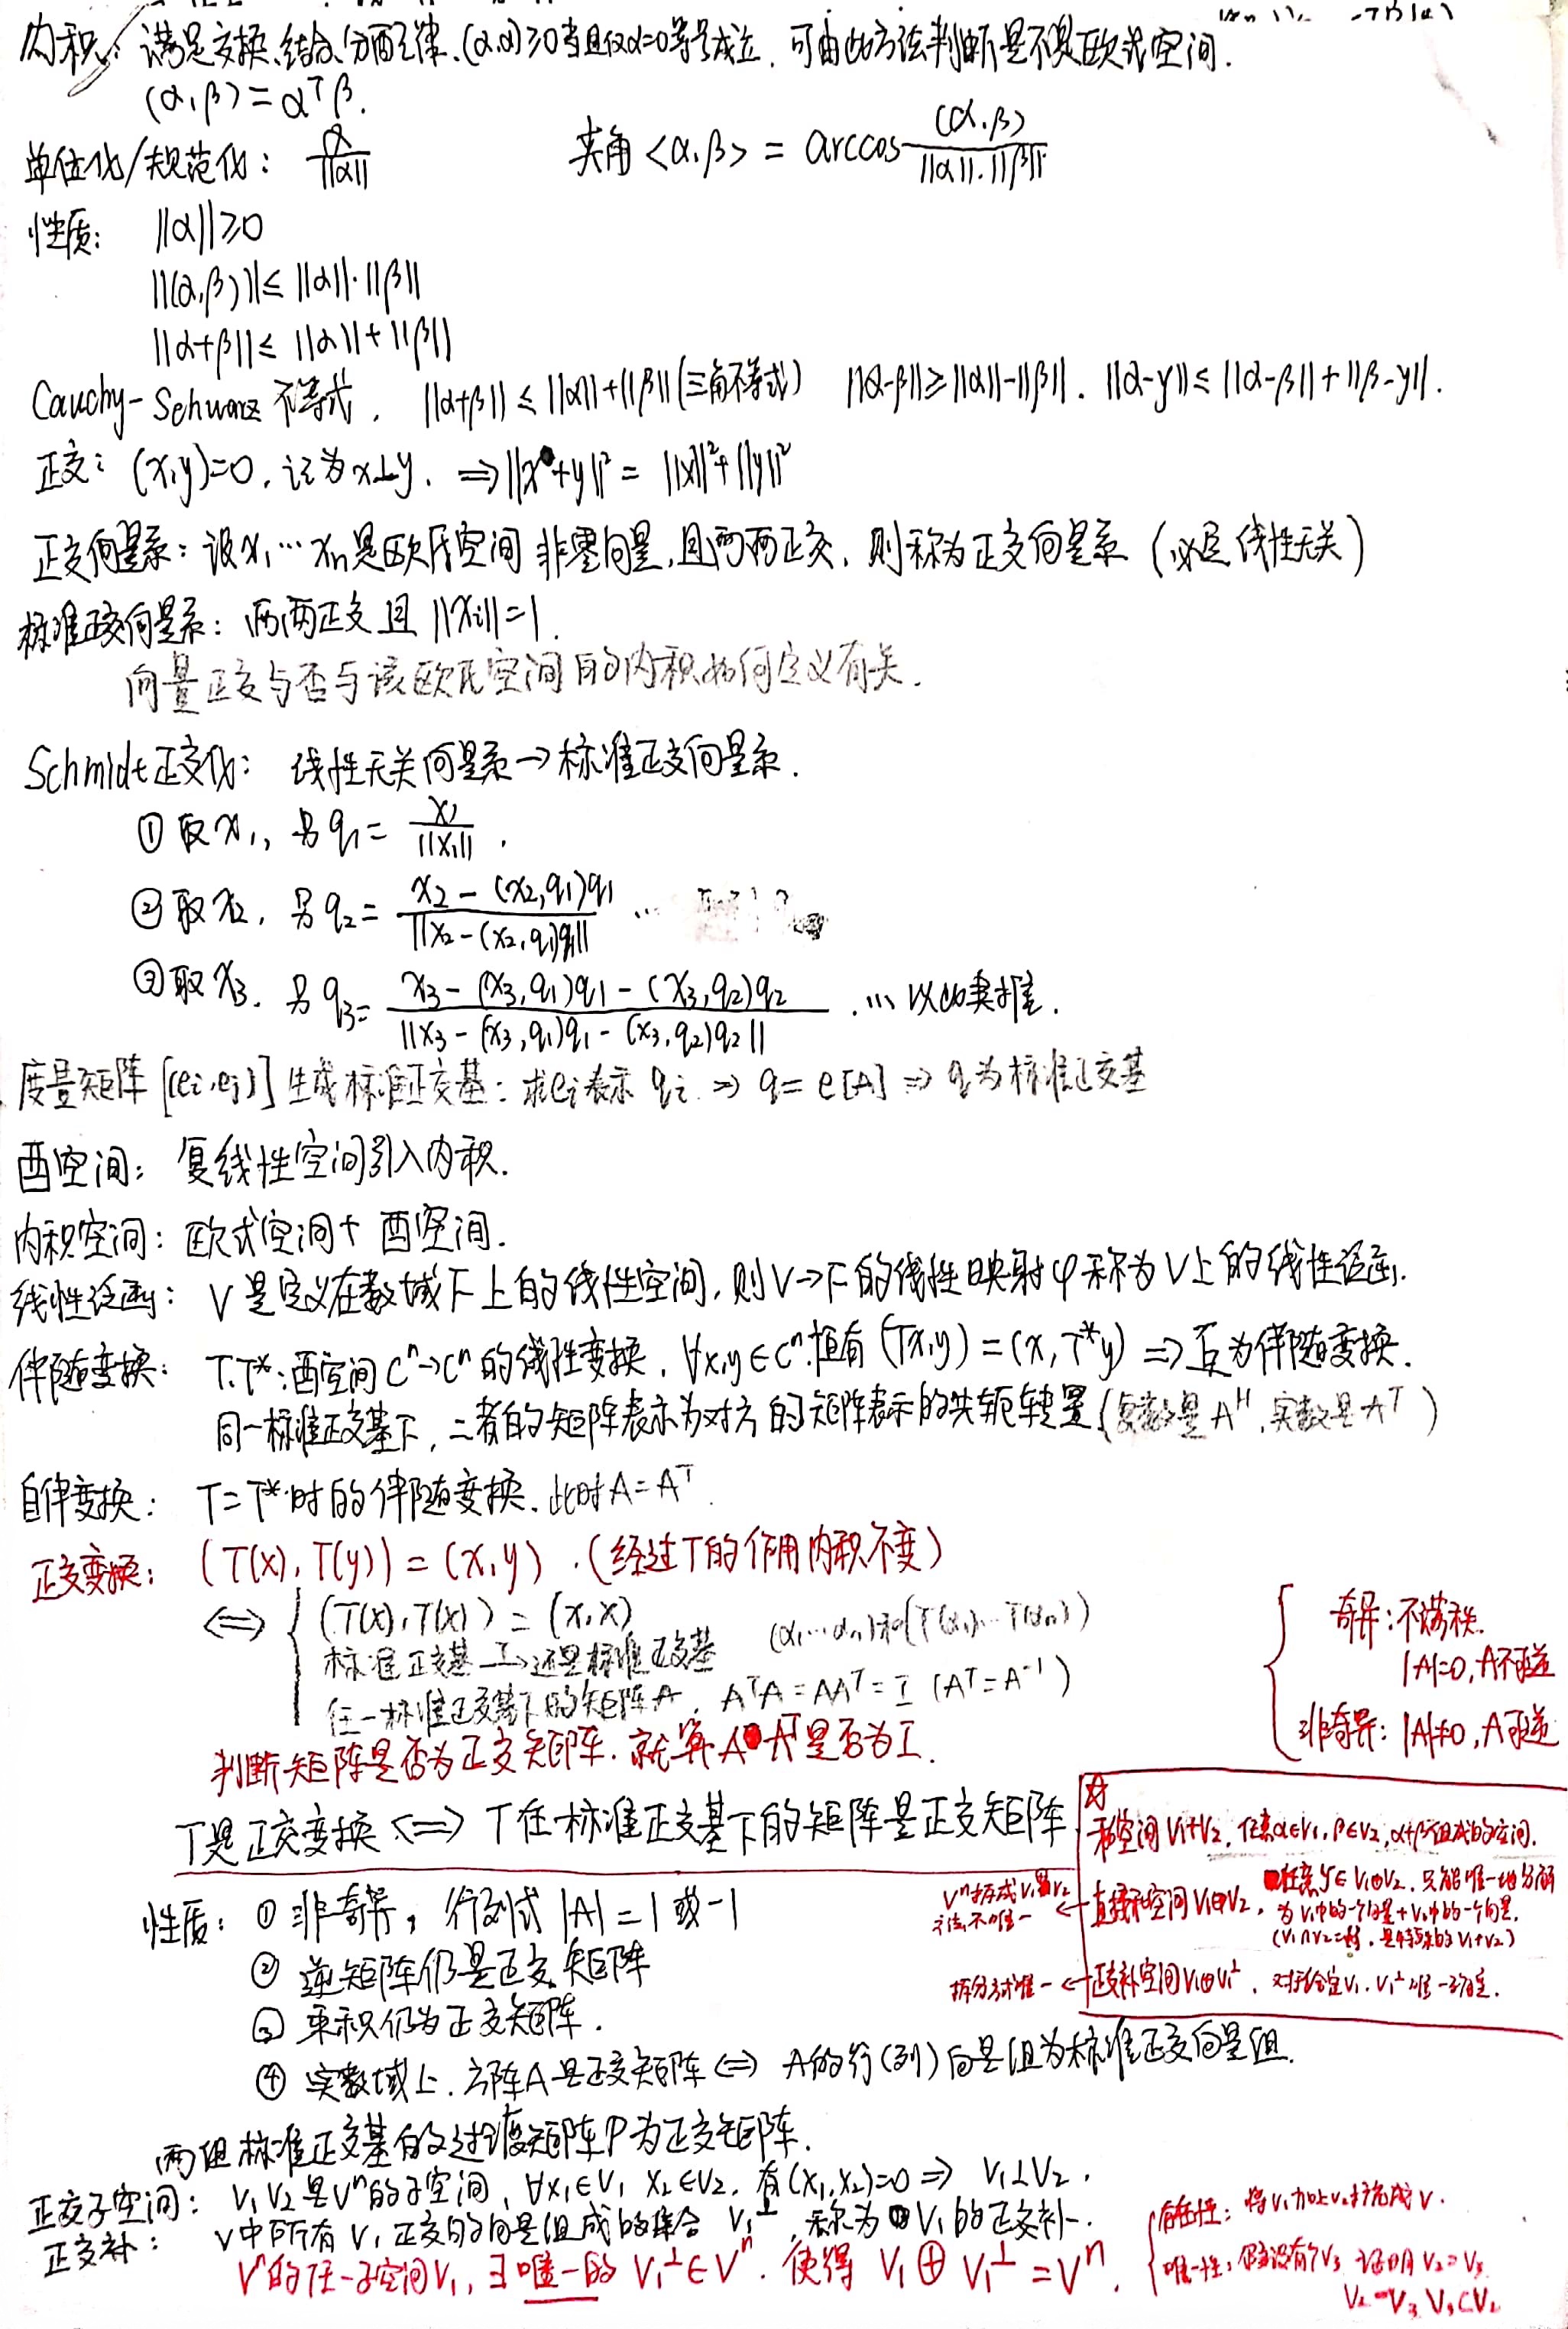 内积: 满足交换、结合、分配律. (α,α)≥0 当且仅α=0等号成立. 可由此方法判断是不是欧式空间.
(α,β)=α^T β.
单位化/规范化: α/||α|| 夹角<α,β> = arccos (α,β)/(||α||·||β||)
性质: ||α||≥0
||(α,β)||≤ ||α||·||β||
||α+β||≤ ||α||+||β||
Cauchy-Schwarz 不等式. ||α+β|| ≤ ||α||+||β|| (三角不等式) ||α-β||≥||α||-||β||. ||α-y||≤ ||α-β||+||β-y||.
正交: (x,y)=0, 记为x⊥y. ⇒||x+y||² = ||x||²+||y||²
正交向量系: 设x₁…xₙ是欧氏空间非零向量,且两两正交, 则称为正交向量系 (必定线性无关)
标准正交向量系: 两两正交且 ||xᵢ||=1.
向量正交与否与该欧氏空间的内积如何定义有关.
Schmidt正交化: 线性无关向量系→标准正交向量系.
① 取x₁, 另q₁= x₁/||x₁|| .
② 取x₂, 另q₂= (x₂-(x₂,q₁)q₁)/||x₂-(x₂,q₁)q₁|| …
③ 取x₃. 另q₃= (x₃-(x₃,q₁)q₁-(x₃,q₂)q₂)/||x₃-(x₃,q₁)q₁-(x₃,q₂)q₂|| .… 以此类推.
度量矩阵[(eᵢ,eⱼ)] 生成标准正交基: 求eᵢ表示qᵢ ⇒ q=e[A] ⇒ q为标准正交基
酉空间: 复线性空间引入内积.
内积空间: 欧式空间+酉空间.
线性泛函: V是定义在数域F上的线性空间, 则V→F的线性映射φ称为V上的线性泛函.
伴随变换: T.T*:酉空间Cⁿ→Cⁿ的线性变换, ∀x,y∈Cⁿ,恒有 (Tx,y)=(x,T*y) ⇒互为伴随变换.
同一标准正交基下, 二者的矩阵表示为对方的矩阵表示的共轭转置(复数是A^H,实数是A^T)
自伴变换: T=T*时的伴随变换. 此时A=A^T.
正交变换: (T(x),T(y))=(x,y) .(经过T的作用内积不变)
⇔ { (T(x),T(x))=(x,x)
标准正交基 T→ 还是标准正交基 (α₁…αₙ)和(T(α₁)…T(αₙ))
任一标准正交基下的矩阵A, A^T A=AA^T=I (A^T=A⁻¹)
判断矩阵是否为正交矩阵. 就算A A^T是否为I.
{ 奇异:不满秩.
|A|=0,A不可逆
非奇异: |A|≠0,A可逆
T是正交变换 ⇔ T在标准正交基下的矩阵是正交矩阵
☆
和空间 V₁+V₂, 任意α∈V₁,β∈V₂,α+β组成的空间.
Vⁿ拆成V₁⊕V₂方法不唯一 ← 直接和空间V₁⊕V₂, 任意y∈V₁⊕V₂, 只能唯一地分解
为V₁中的一个向量+V₂中的一个向量.
拆分方式唯一 ← 正交补空间V₁⊕V₁^⊥, 对于给定V₁, V₁^⊥唯一确定.
性质: ① 非奇异, 行列式|A|=1或-1
② 逆矩阵仍是正交矩阵
③ 乘积仍为正交矩阵.
④ 实数域上, 方阵A是正交矩阵⇔ A的行(列)向量组为标准正交向量组.
两组标准正交基的过渡矩阵P为正交矩阵.
正交子空间: V₁ V₂是Vⁿ的子空间, ∀x₁∈V₁ x₂∈V₂, 有(x₁,x₂)=0 ⇒ V₁⊥V₂.
正交补: V中所有V₁正交的向量组成的集合V₁^⊥, 称为V₁的正交补.
Vⁿ的任一子空间V₁, ∃唯一的 V₁^⊥∈Vⁿ. 使得 V₁⊕V₁^⊥=Vⁿ.
{ 存在性: 将V₁加上V₂扩充成V.
唯一性: 假设有个V₃ 证明V₂=V₃